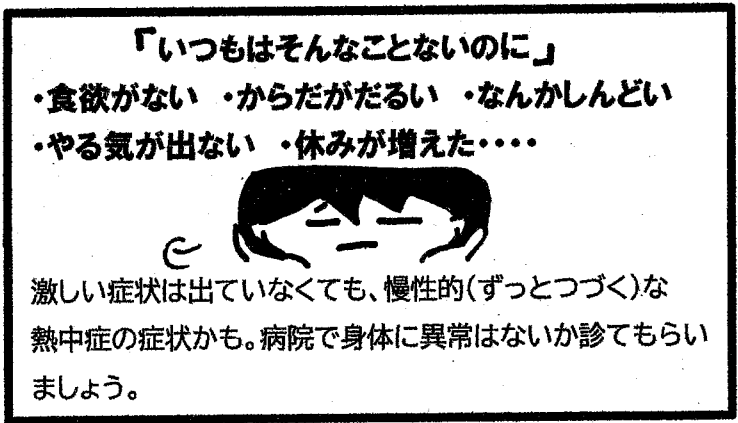 「いつもはそんなことないのに」
・食欲がない ・からだがだるい ・なんかしんどい
・やる気が出ない ・休みが増えた・・・・
激しい症状は出ていなくても、慢性的(ずっとつづく)な
熱中症の症状かも。病院で身体に異常はないか診てもらい
ましょう。